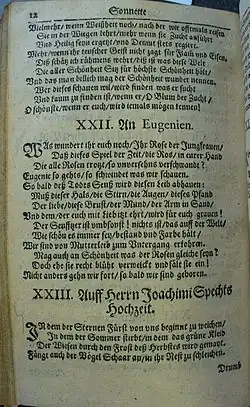 12 Sonnette
Vielmehr/ wenn Weißheit noch/ nach der wir offtmals reisen
Sie in der Wiegen lehrt/ mehr wenn sie Zucht anführt
Und Heilig seyn ergetzt/ und Demut stets regiert.
Mehr/ wenn ihr keuscher Geist nicht zagt für Flam und Eisen.
Diß schätz ich rühmens wehrt/ diß ist was diese Welt
Die aller Schönheit Sitz für höchste Schönheit hält/
Und das man billich mag der Schönheit wunder nennen.
Wer dieses schauen wil/ wird finden was er sucht
Und kaum zu finden ist/ wenn er/ O Blum der Zucht/
O schönste/ wenn er euch/ wird jemals mögen kennen!
XXII. An Eugenien.
WAs wundert ihr euch noch/ Ihr Rose der Jungfrauen/
Daß dieses Spiel der Zeit/ die Ros/ in eurer Hand
Die alle Rosen trotzt/ so unversehns verschwand?
Eugenie so gehts/ so schwindet was wir schauen.
So bald deß Todes Senß wird diesen Leib abhauen:
Muß dieser Hals/ die Stirn/ die Augen/ dieses Pfand
Der Liebe/ diese Brust/ der Mund/ der Arm in Sand/
Und dem/ der euch mit Lieb itzt ehrt/ wird für euch grauen!
Der Seuffzer ist umbsonst! nichts ist/ das auff der Welt/
Wie schön es immer sey/ bestand und Farbe hält/
Wir sind von Mutterleib zum Untergang erkohren.
Mag auch an Schönheit was der Rosen gleiche seyn?
Doch ehe sie recht blüht verwelckt und fält sie ein!
Nicht anders gehn wir fort/ so bald wir sind geboren.
XXIII. Auff Herrn Joachimi Spechts
Hochzeit.
IN dem der Sternen Fürst von uns beginnt zu weichen/
In dem der Sommer stirbt/ in dem das grüne Kleid
Der Wiesen durch den Frost deß Herbstes wird gemayt.
Fängt auch der Vögel Schaar an/ in ihr Nest zu schleichen.
Drumb